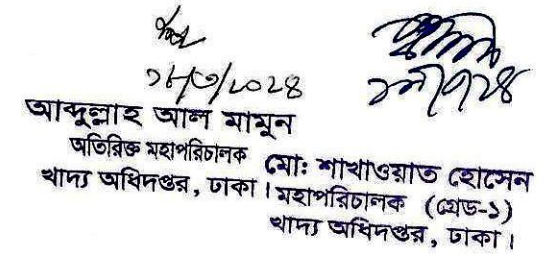 আব্দুল্লাহ আল মামুন
অতিরিক্ত মহাপরিচালক
খাদ্য অধিদপ্তর, ঢাকা।
মো: শাখাওয়াত হোসেন
মহাপরিচালক (গ্রেড-১)
খাদ্য অধিদপ্তর, ঢাকা।